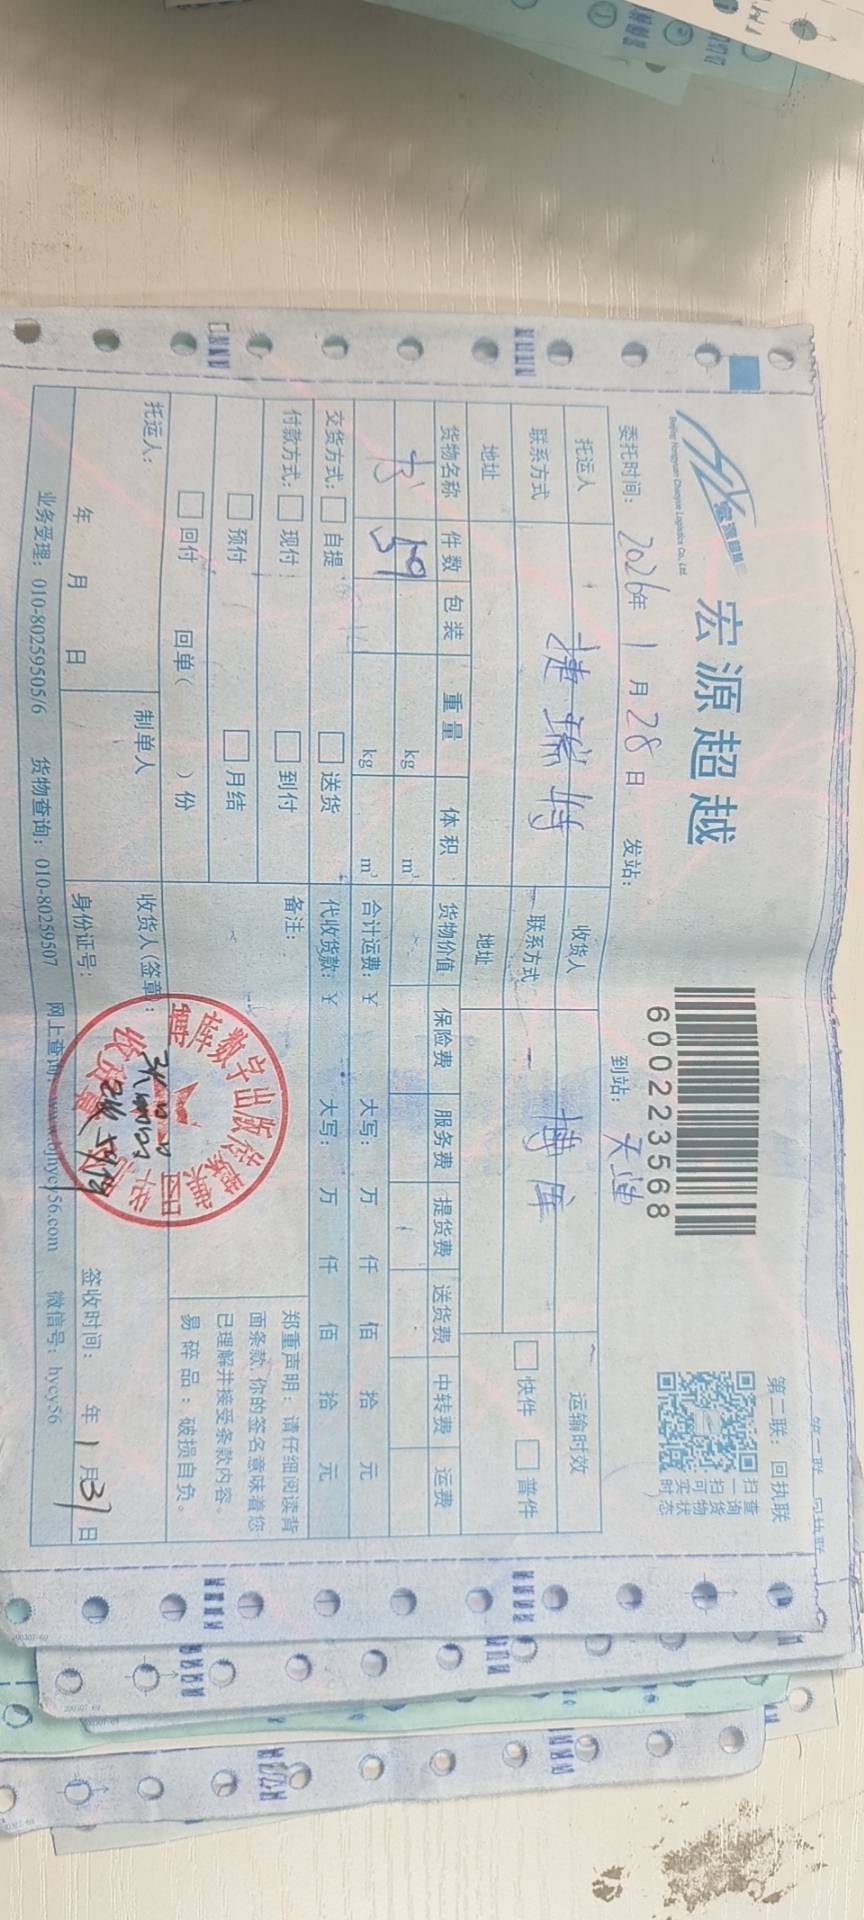 第二联：回执联
宏源超越
Beijing Hongyuan Chaoyue Logistics Co., Ltd.
600223568
扫一扫可实时
查询货物状态
委托时间：2026年1月28日 发站： 到站：天迪
托运人 捷瑞特 收货人 博库 运输时效
联系方式 联系方式 快件 普件
地址 地址
货物名称 件数 包装 重量 体积 货物价值 保险费 服务费 提货费 送货费 中转费 运费
书 59 kg m³
kg m³ 合计运费：¥ 大写： 万 仟 佰 拾 元
交货方式： 自提 送货 代收货款：¥ 大写： 万 仟 佰 拾 元
付款方式： 现付 到付 备注：
预付 月结
回付 回单（ ）份
郑重声明：请仔细阅读背
面条款，你的签名意味着您
已理解并接受条款内容。
易碎品：破损自负。
托运人： 制单人 收货人(签章)：
年 月 日 身份证号： 签收时间： 年1月31日
博库数字出版传媒集团
收货章
业务受理：010-80259505/6 货物查询：010-80259507 网上查询：www.bjhycy56.com 微信号：hycy56